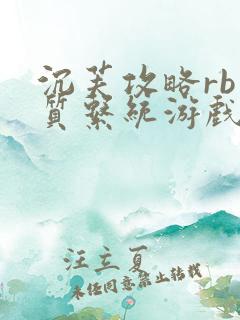 沉芙攻略rb
质系统游戏
汪立夏
未经同意禁止转载